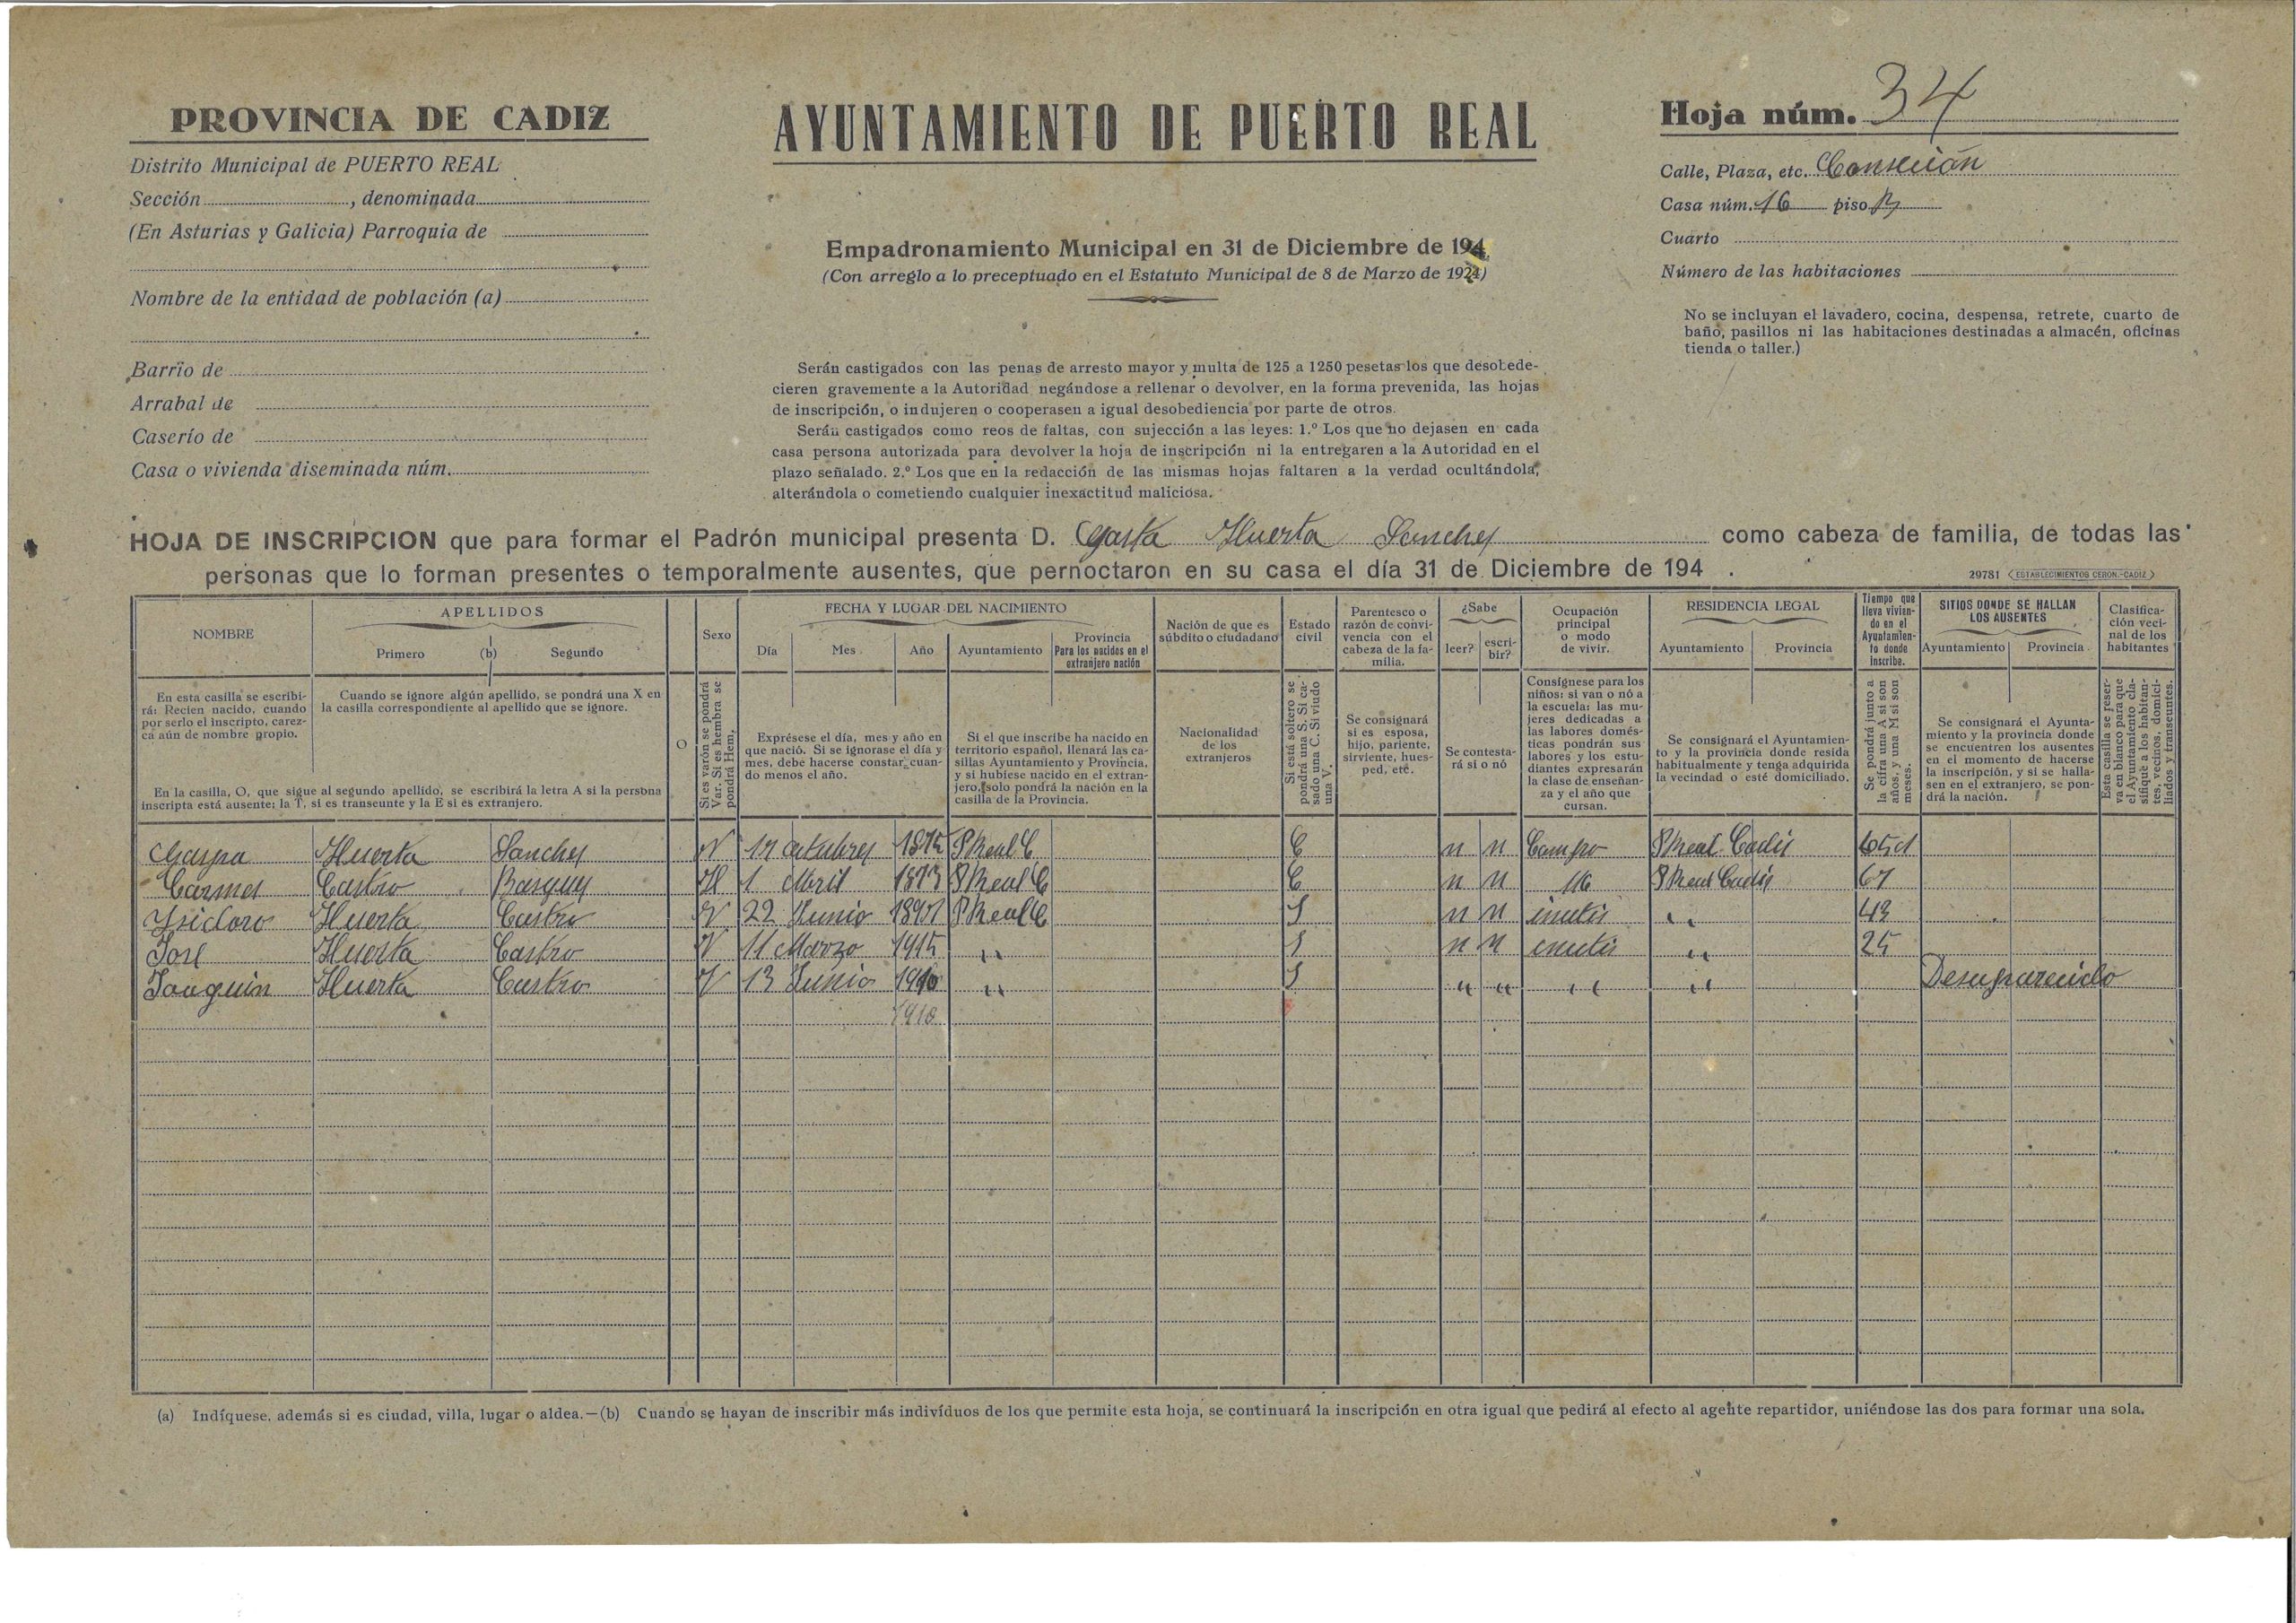 PROVINCIA DE CADIZ
Distrito Municipal de PUERTO REAL
Sección , denominada
(En Asturias y Galicia) Parroquia de
Nombre de la entidad de población (a)
Barrio de
Arrabal de
Caserío de
Casa o vivienda diseminada núm.
AYUNTAMIENTO DE PUERTO REAL
Empadronamiento Municipal en 31 de Diciembre de 194
(Con arreglo a lo preceptuado en el Estatuto Municipal de 8 de Marzo de 1924)
Serán castigados con las penas de arresto mayor y multa de 125 a 1250 pesetas los que desobede-
cieren gravemente a la Autoridad negándose a rellenar o devolver, en la forma prevenida, las hojas
de inscripción, o indujeren o cooperasen a igual desobediencia por parte de otros.
Serán castigados como reos de faltas, con sujección a las leyes: 1.º Los que no dejasen en cada
casa persona autorizada para devolver la hoja de inscripción ni la entregaren a la Autoridad en el
plazo señalado. 2.º Los que en la redacción de las mismas hojas faltaren a la verdad ocultándola,
alterándola o cometiendo cualquier inexactitud maliciosa.
Hoja núm. 34
Calle, Plaza, etc.
Casa núm. 16 piso B
Cuarto
Número de las habitaciones
No se incluyan el lavadero, cocina, despensa, retrete, cuarto de
baño, pasillos ni las habitaciones destinadas a almacén, oficinas
tienda o taller.)
HOJA DE INSCRIPCION que para formar el Padrón municipal presenta D. Huerta Sanches como cabeza de familia, de todas las
personas que lo forman presentes o temporalmente ausentes, que pernoctaron en su casa el día 31 de Diciembre de 194 .
29781 (ESTABLECIMIENTOS CERON.-CADIZ)
NOMBRE
APELLIDOS
Primero (b) Segundo
O
Sexo
FECHA Y LUGAR DEL NACIMIENTO
Día Mes Año Ayuntamiento
Provincia
Para los nacidos en el
extranjero nación
Nación de que es
súbdito o ciudadano
Estado
civil
Parentesco o
razón de convi-
vencia con el
cabeza de la fa-
milia.
¿Sabe
leer? escri-
bir?
Ocupación
principal
o modo
de vivir.
RESIDENCIA LEGAL
Ayuntamiento Provincia
Tiempo que
lleva vivien-
do en el
Ayuntamien-
to donde
inscribe.
SITIOS DONDE SE HALLAN
LOS AUSENTES
Ayuntamiento Provincia
Clasifica-
ción veci-
nal de los
habitantes
En esta casilla se escribi-
rá: Recien nacido, cuando
por serlo el inscripto, carez-
ca aún de nombre propio.
Cuando se ignore algún apellido, se pondrá una X en
la casilla correspondiente al apellido que se ignore.
En la casilla, O, que sigue al segundo apellido, se escribirá la letra A si la persona
inscripta está ausente; la T, si es transeunte y la E si es extranjero.
Si es varón se pondrá
Var. Si es hembra se
pondrá Hem.
Exprésese el día, mes y año en
que nació. Si se ignorase el día y
mes, debe hacerse constar cuan-
do menos el año.
Si el que inscribe ha nacido en
territorio español, llenará las ca-
sillas Ayuntamiento y Provincia,
y si hubiese nacido en el extran-
jero, solo pondrá la nación en la
casilla de la Provincia.
Nacionalidad
de los
extranjeros
Si está soltero se
pondrá una S. Si ca-
sado una C. Si viudo
una V.
Se consignará
si es esposa,
hijo, pariente,
sirviente, hues-
ped, etc.
Se contesta-
rá si o nó
Consígnese para los
niños: si van o nó a
la escuela: las mu-
jeres dedicadas a
las labores domés-
ticas pondrán sus
labores y los estu-
diantes expresarán
la clase de enseñan-
za y el año que
cursan.
Se consignará el Ayuntamien-
to y la provincia donde resida
habitualmente y tenga adquirida
la vecindad o esté domiciliado.
Se pondrá junto a
la cifra una A si son
años, y una M si son
meses.
Se consignará el Ayunta-
miento y la provincia donde
se encuentren los ausentes
en el momento de hacerse
la inscripción, y si se halla-
sen en el extranjero, se pon-
drá la nación.
Esta casilla se reser-
va en blanco para que
el Ayuntamiento cla-
sifique a los habitan-
tes, vecinos, domici-
liados y transeuntes.
Gaspa Huerta Sanches V 17 1875 P Real C C n n Campo P Real Cadis
Carmes Castro H 1 Abril 1873 P Real C C n n P Real Cadis 67
Ysidoro Huerta Castro V 22 Junio 1897 P Real C S n n inutis " 43
Jose Huerta Castro V 11 Marzo 1915 " S n n inutis " 25
Jouguin Huerta Castro V 13 Junio 1910 " S " " " " Desaparecido
1910
(a) Indíquese, además si es ciudad, villa, lugar o aldea.—(b) Cuando se hayan de inscribir más indivíduos de los que permite esta hoja, se continuará la inscripción en otra igual que pedirá al efecto al agente repartidor, uniéndose las dos para formar una sola.